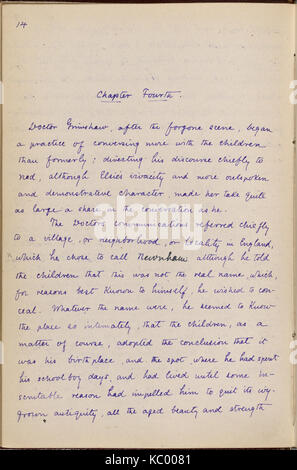 14
Chapter Fourth.
Doctor Grimshaw, after the forgone scene, began
a practice of conversing more with the children
than formerly; directing his discourse chiefly to
Ned, although Elsie's vivacity and more outspoken
and demonstrative character made her take quite
as large a share in the conversation as he.
The Doctor's communications referred chiefly
to a village, or neighborhood, or locality in England,
which he chose to call Newnham although he told
the children that this was not the real name, which,
for reasons best known to himself, he wished to con-
ceal. Whatever the name were, he seemed to know
the place so intimately, that the children, as a
matter of course, adopted the conclusion that it
was his birthplace, and the spot where he had spent
his schoolboy days, and had lived until some in-
scrutable reason had impelled him to quit its ivy-
grown antiquity, all the aged beauty and strength
alamy
Image ID: KC0081
www.alamy.com